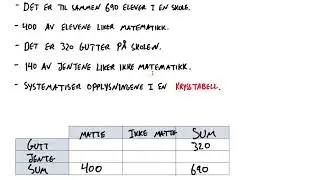 - DET ER TIL SAMMEN 690 ELEVER I EN SKOLE.
- 400 AV ELEVENE LIKER MATEMATIKK.
- DET ER 320 GUTTER PÅ SKOLEN.
- 140 AV JENTENE LIKER IKKE MATEMATIKK.
- SYSTEMATISER OPPLYSNINGENE I EN KRYSSTABELL.
MATTE IKKE MATTE SUM
GUTT 320
JENTE
SUM 400 690